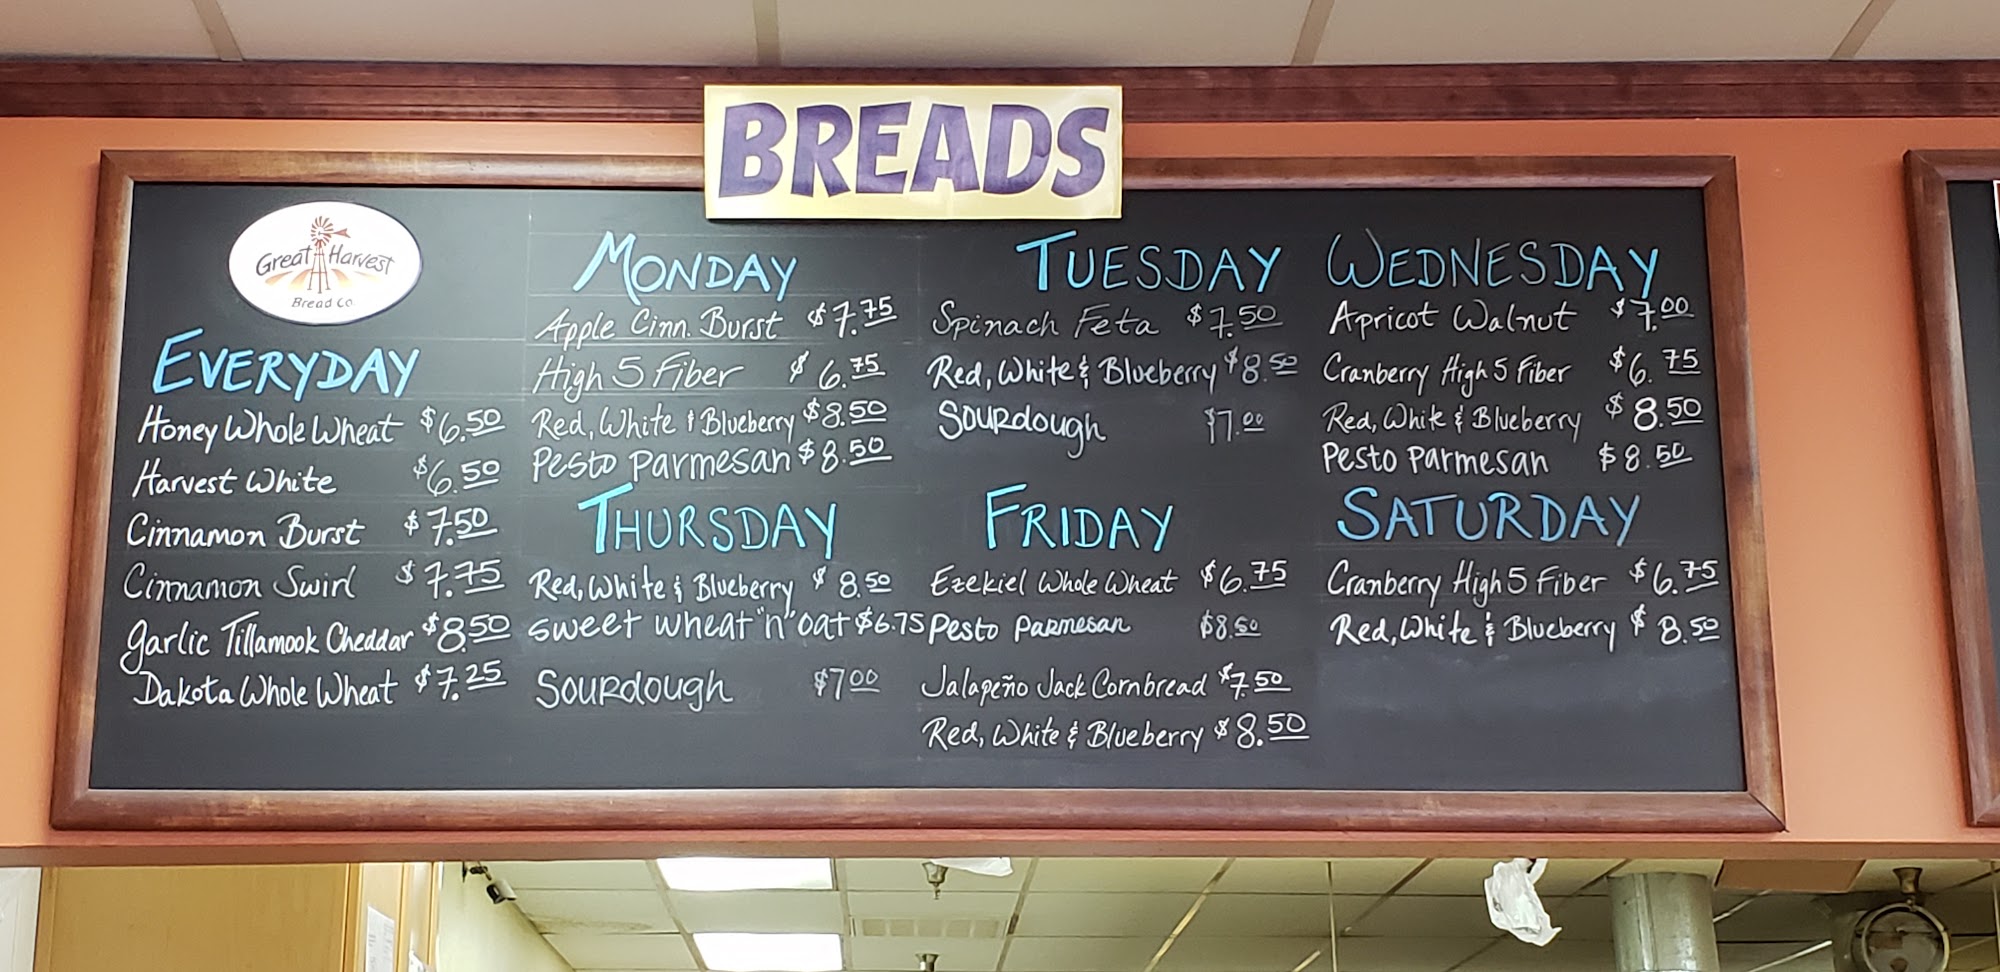 BREADS
Great Harvest
Bread Co.
EVERYDAY
Honey Whole Wheat $6.50
Harvest White $6.50
Cinnamon Burst $7.50
Cinnamon Swirl $7.75
Garlic Tillamook Cheddar $8.50
Dakota Whole Wheat $7.25
MONDAY
Apple Cinn. Burst $7.75
High 5 Fiber $6.75
Red, White & Blueberry $8.50
Pesto Parmesan $8.50
TUESDAY
Spinach Feta $7.50
Red, White & Blueberry $8.50
Sourdough $7.00
WEDNESDAY
Apricot Walnut $7.00
Cranberry High 5 Fiber $6.75
Red, White & Blueberry $8.50
Pesto Parmesan $8.50
THURSDAY
Red, White & Blueberry $8.50
Sweet Wheat "n" oat $6.75
Sourdough $7.00
FRIDAY
Ezekiel Whole Wheat $6.75
Pesto Parmesan $8.50
Jalapeño Jack Cornbread $7.50
Red, White & Blueberry $8.50
SATURDAY
Cranberry High 5 Fiber $6.75
Red, White & Blueberry $8.50